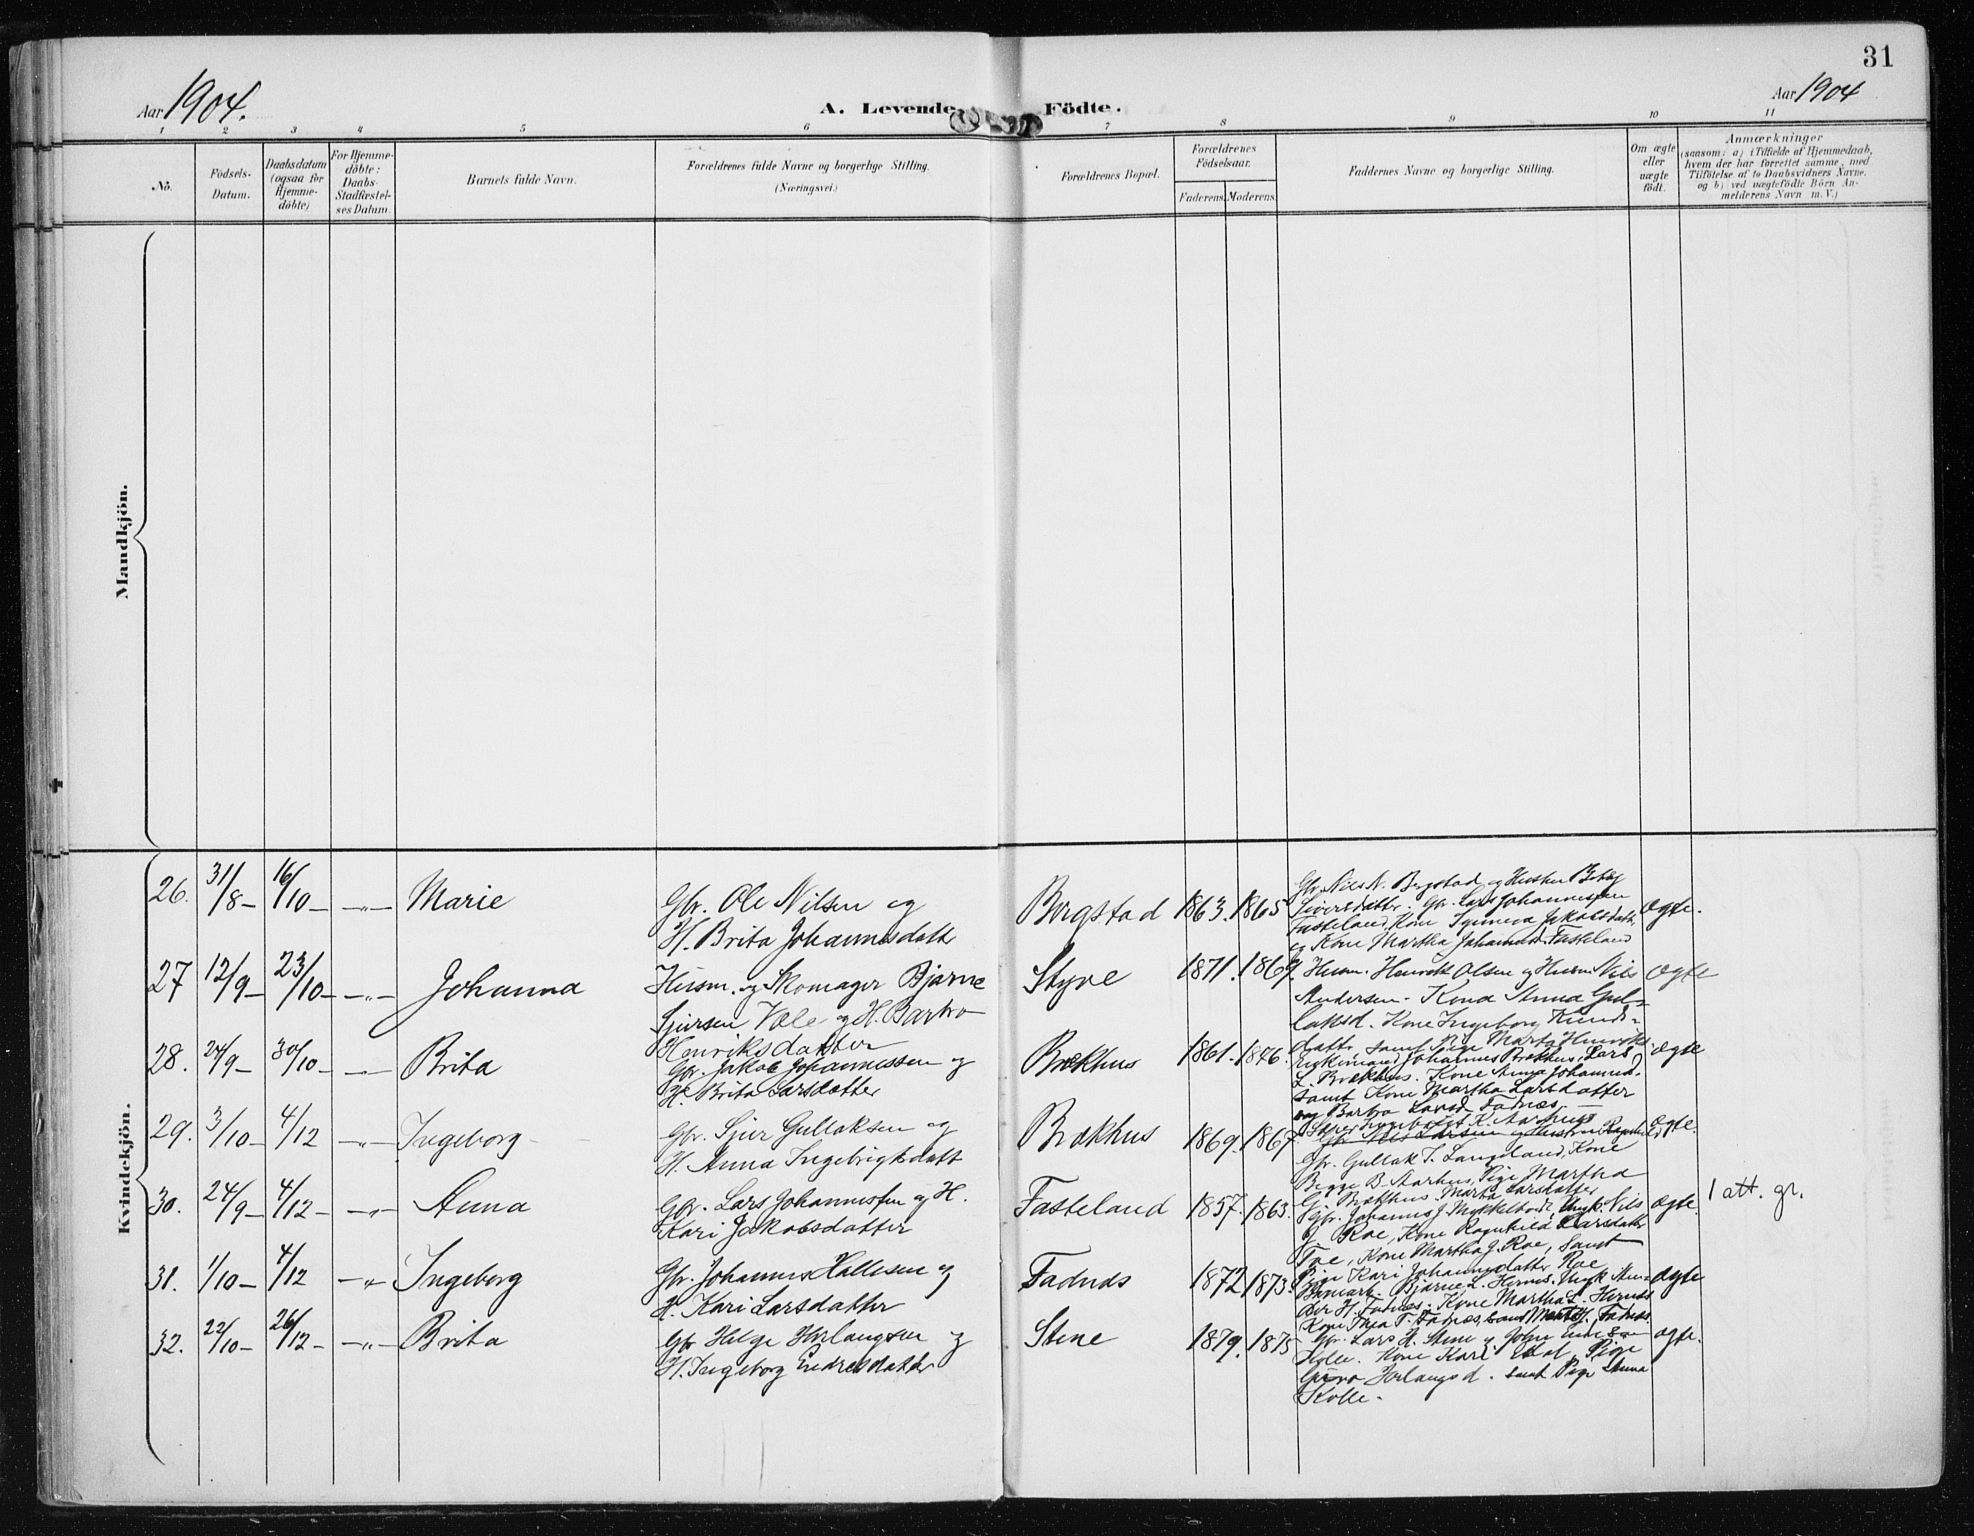 31
Aar 1904.
A. Levende Födte.
Aar 1904
1 2 3 4 5 6 7 8 9 10 11
No.
Födsels-Datum.
Daabsdatum (ogsaa for Hjemme-döbte)
For Hjemme-döbte: Daabs-Stadfæstel-ses Datum.
Barnets fulde Navn.
Forældrenes fulde Navne og borgerlige Stilling.
(Næringsvei.)
Forældrenes Bopæl.
Forældrenes Födselsaar.
Faderens. Moderens.
Faddernes Navne og borgerlige Stilling.
Om ægte eller uægte födt.
Anmærkninger
(saasom: a) i Tilfælde af Hjemmedaab,
hvem der har forrettet samme, med
Tilföielse af to Daabsvidners Navne.
og b) ved uægtefödte Börn An-
melderens Navn m. V.)
Mandkjön.
Kvindekjön.
26. 31/8 – 16/10 – –„– Marie
Gbr. Ole Nilsen og
H. Brita Johannesdatt
Bergstad 1863. 1865
Gbr. Nils N. Bergstad og Hustru
Siversdatter. Gbr. Lars Johannessen
Fasteland, Kone Synneva Jakobsdatter
og Kone Martha Johannesd. Fasteland
ægte.
27 12/9 – 23/10 – –„– Johanna
Husm. og Skomager Bjarne
Sjursen Væle og H. Barbro
Henriksdatter
Styve 1871. 1869.
Husm. Henrik Olsen og Husm Nils
Andersen. Kone Anna Gul-
laksd. Kone Ingeborg
datter samt Pige Marta Henriks
ægte
28. 24/9 – 30/10 – –„– Brita
Gbr. Jakob Johannessen og
H. Brita Larsdatter
Brækhus 1861. 1876.
Ungkmand Johannes Brækhus. Lars
L. Brækhus. Kone Anna Johannesd.
samt Kone Martha Larsdatter
og Barbro Larsd Fadnæs
ægte
29. 3/10 – 4/12 –„– Ingeborg
Gbr. Sjur Gullaksen og
H. Anna Ingebrigtsdatt
Brækhus 1869. 1867
K. Aarhus
Gbr. Gullak T. Langeland, Kone
B. Aarhus, Pige Martha
G. Brækhus. Marta Larsdatter
ægte.
30. 24/9 – 4/12 – –„– Anna
Gbr. Lars Johannessen og H.
Kari Jakobsdatter
Fasteland 1857. 1863.
Gbr. Johannes J. Mykkeltvedt, Ungk. Nils
J. Roe, Kone Ragnhild Larsdatter
Kone Martha J. Roe, samt
Pige Kari Johannesdatter Roe
ægte.
1 att. gr.
31. 1/10 – 4/12 –„– Ingeborg
Gbr. Johannes Hallesen og
H. Kari Larsdatter
Fadnæs 1872 1873.
Bjarne L. Hernes. Ungk An-
ders H. Fadnæs. Kone Martha L. Hernes
Kone Thea T. Fadnæs, samt Marta J. Fadnæs
ægte
32. 22/10 – 26/12 – –„– Brita
Gbr Helge Herlaugsen og
H. Ingeborg Endresdatter
Stene 1879. 1875
Gbr. Lars H. Stene og
Kolle. Kone Kari Pige
Guro Herlaugsd. samt Pige Anna
Kolle.
ægte.